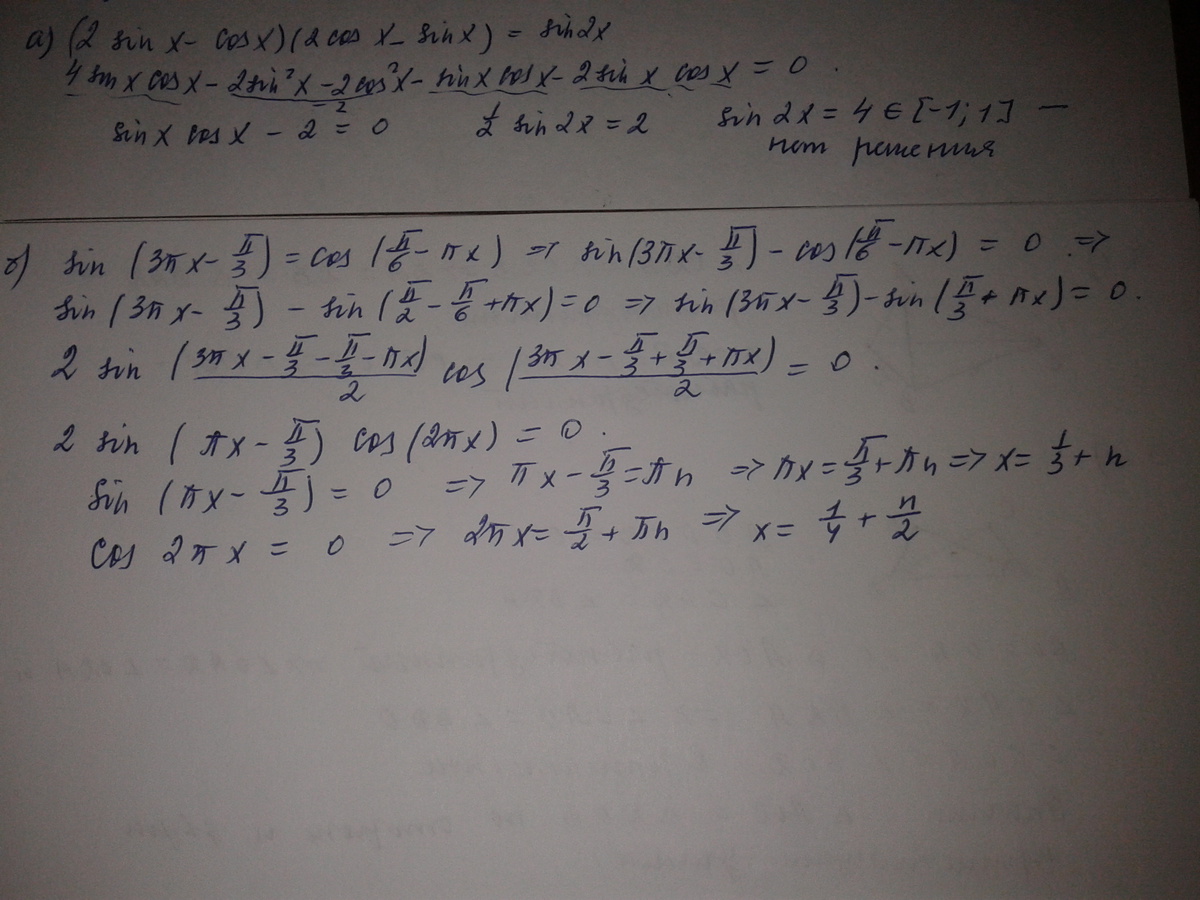 а) (2 sin x - cos x)(2 cos x - sin x) = sin2x
4 sin x cos x - 2sin²x - 2cos²x - sin x cos x - 2 sin x cos x = 0.
-2
sin x cos x - 2 = 0 ½ sin 2x = 2 sin 2x = 4 ∈ [-1; 1] —
нет решения
б) sin (3πx - π/3) = cos (π/6 - πx) => sin(3πx - π/3) - cos(π/6 - πx) = 0 =>
sin (3πx - π/3) - sin (π/2 - π/6 + πx) = 0 => sin (3πx - π/3) - sin (π/3 + πx) = 0.
2 sin (3πx - π/3 - π/3 - πx)/2 cos (3πx - π/3 + π/3 + πx)/2 = 0.
2 sin (πx - π/3) cos (2πx) = 0.
sin (πx - π/3) = 0 => πx - π/3 = πn => πx = π/3 + πn => x = 1/3 + n
cos 2πx = 0 => 2πx = π/2 + πn => x = 1/4 + n/2